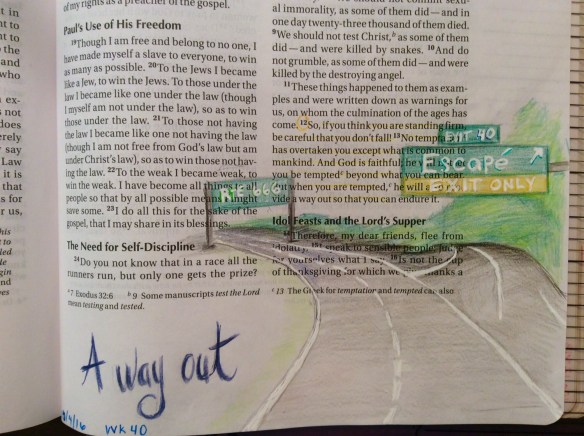 of my rights as a preacher of the gospel.
Paul's Use of His Freedom
19Though I am free and belong to no one, I
have made myself a slave to everyone, to win
as many as possible. 20To the Jews I became
like a Jew, to win the Jews. To those under the
law I became like one under the law (though
I myself am not under the law), so as to win
those under the law. 21To those not having
the law I became like one not having the law
(though I am not free from God's law but am
under Christ's law), so as to win those not hav-
ing the law. 22To the weak I became weak, to
win the weak. I have become all things to all
people so that by all possible means I might
save some. 23I do all this for the sake of the
gospel, that I may share in its blessings.
The Need for Self-Discipline
24Do you not know that in a race all the
runners run, but only one gets the prize?
a 7 Exodus 32:6 b 9 Some manuscripts test the Lord
mean testing and tested.
al immorality, as some of them did—and in
one day twenty-three thousand of them died.
9We should not test Christ,b as some of them
did—and were killed by snakes. 10And do
not grumble, as some of them did—and were
killed by the destroying angel.
11These things happened to them as exam-
ples and were written down as warnings for
us, on whom the culmination of the ages has
come. 12So, if you think you are standing firm,
be careful that you don't fall! 13No
has overtaken you except what is common to
mankind. And God is faithful; he will not let
be tempted beyond what you can bear.
But when you are tempted,c he will
a way out so that you can endure it.
Idol Feasts and the Lord's Supper
Therefore, my dear friends, flee from
idolatry. 15I speak to sensible people;
for yourselves what I say. 16Is not the cup
of thanksgiving for which we thanks a
c 13 The Greek for temptation and tempted can also
EXIT 40
Escape
EXIT ONLY
A way out
WK 40